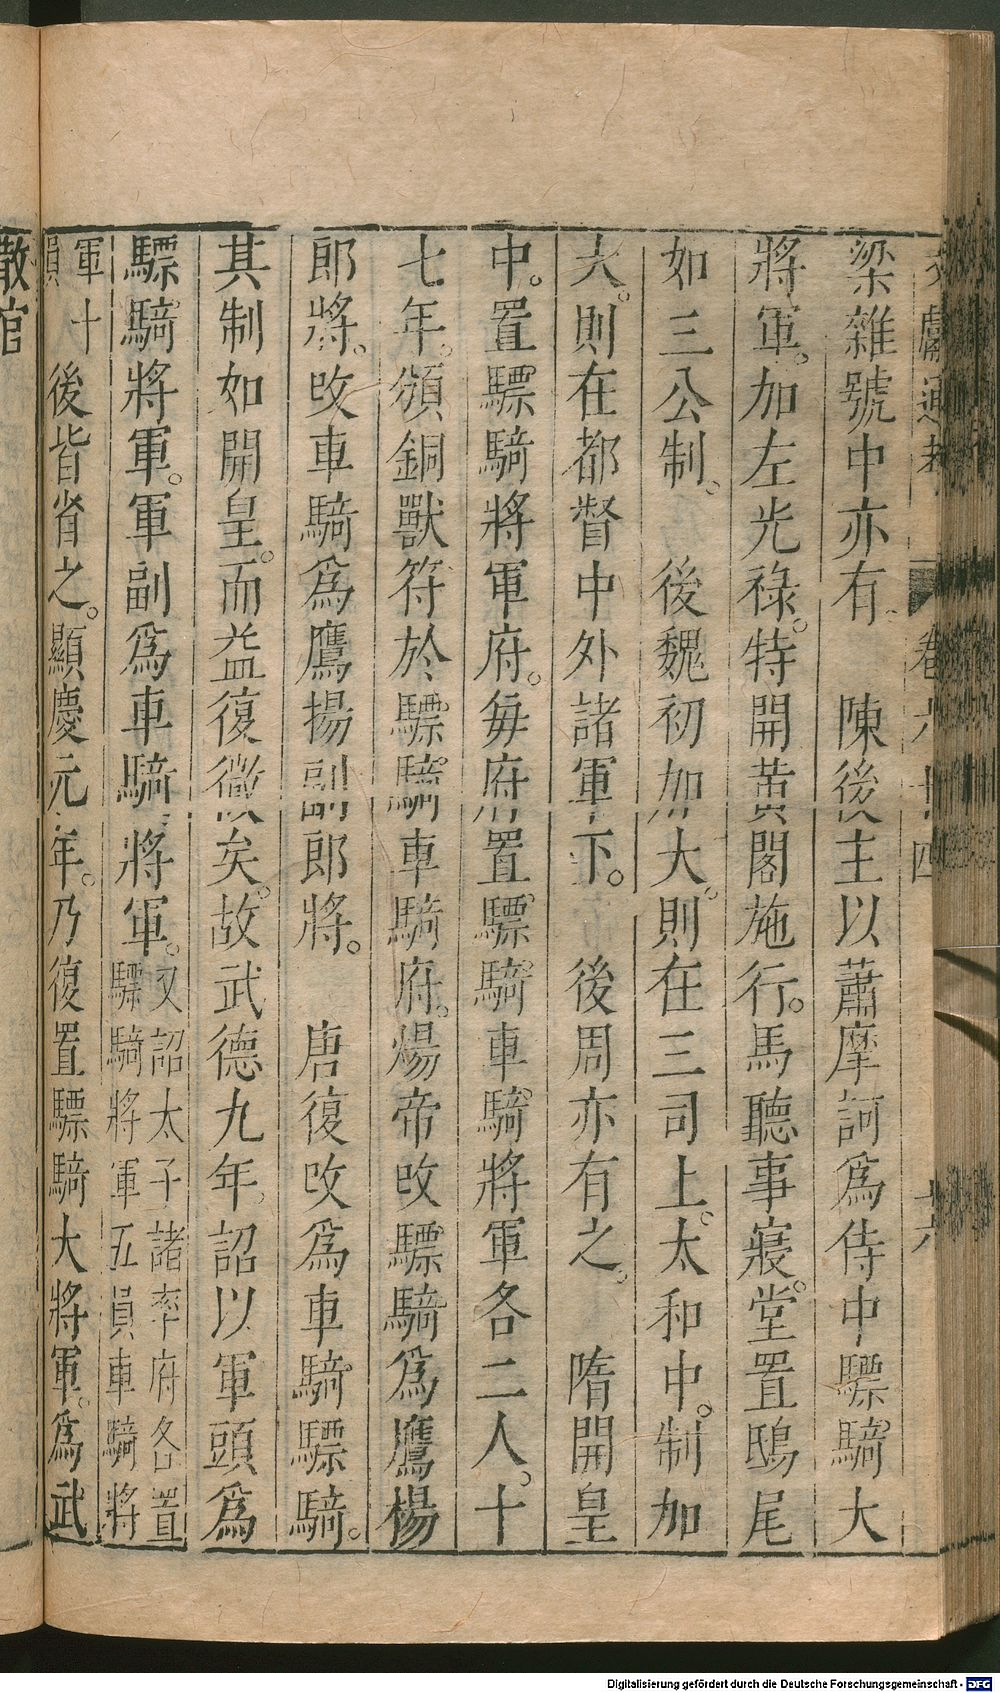 文獻通考 卷六十四 十六
梁雜號中亦有 陳後主以蕭摩訶爲侍中驃騎大
將軍。加左光祿。特開黃閣施行。馬聽事寢。堂置鴟尾
如三公制。 後魏初加大。則在三司上。太和中。制加
大。則在都督中外諸軍下。 後周亦有之。 隋開皇
中。置驃騎將軍府。每府置驃騎。車騎將軍各二人。十
七年。頒銅獸符於驃騎。車騎府。煬帝改驃騎爲鷹楊
郎將。改車騎爲鷹揚副郎將。 唐復改爲車騎驃騎。
其制如開皇。而益復微矣。故武德九年。詔以軍頭爲
驃騎將軍。軍副爲車騎將軍。又詔太子諸率府各置驃騎將軍五員車騎將
軍十員後皆省之。顯慶元年。乃復置驃騎大將軍。爲武
散官
Digitalisierung gefördert durch die Deutsche Forschungsgemeinschaft - DFG